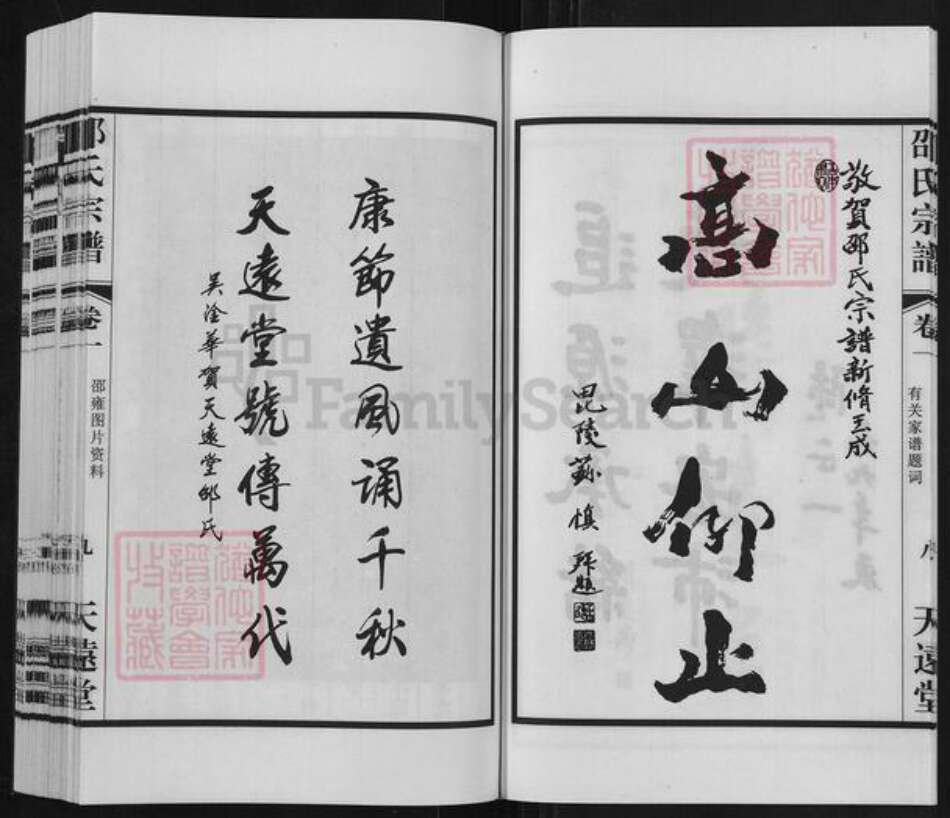 邵氏宗譜
卷一
有关家谱题词
八
天遠堂
敬賀邵氏宗譜新脩玉成
高山仰止
毘陵蘇慎拜題
康節遺風誦千秋
天遠堂號傳萬代
吴淦華賀天遠堂邵氏
邵氏宗譜
卷一
邵雍图片资料
九
天遠堂
FamilySearch
譜學會
收藏